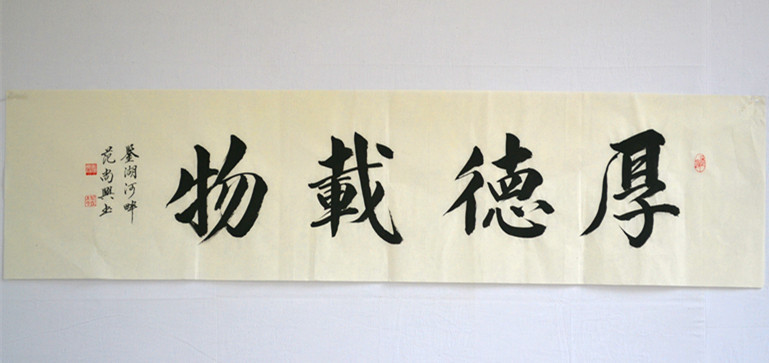 厚德載物
湖河畔
范尚興书